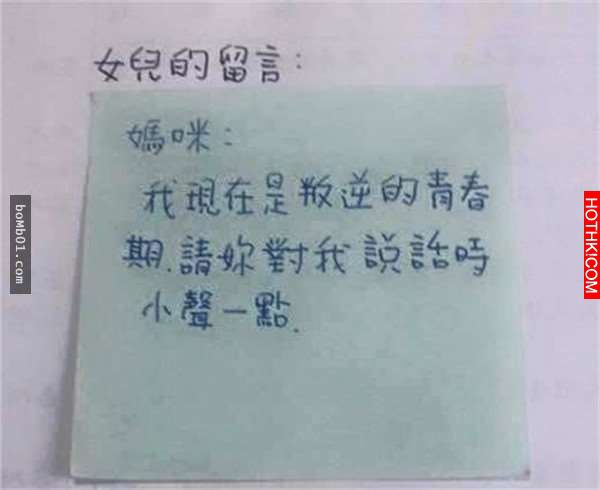 女兒的留言：
媽咪：
我現在是叛逆的青春
期.請妳對我說話時
小聲一點.
boMb01.com
HOTHK!COM